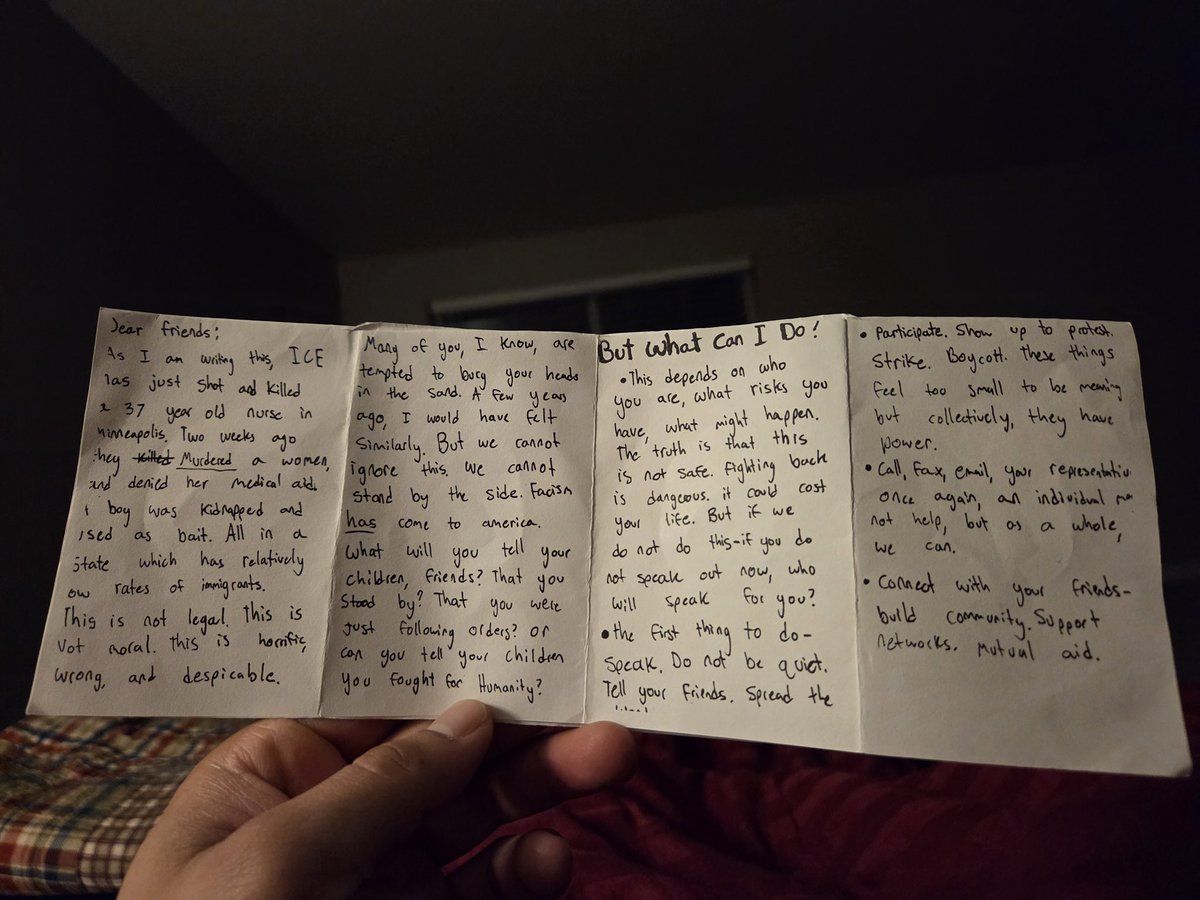 Dear friends:
As I am writing this, ICE
has just shot and killed
a 37 year old nurse in
Minneapolis. Two weeks ago
they killed Murdered a women,
and denied her medical aid.
A boy was kidnapped and
used as bait. All in a
state which has relatively
low rates of immigrants.
This is not legal. This is
Not moral. This is horrific,
wrong, and despicable.
Many of you, I know, are
tempted to burg your heads
in the sand. A few years
ago, I would have felt
similarly. But we cannot
ignore this. We cannot
stand by the side. Facism
has come to america.
What will you tell your
children, friends? That you
stood by? That you were
just following orders? or
can you tell your children
you fought for Humanity?
But what can I Do?
• This depends on who
you are, what risks you
have, what might happen.
The truth is that this
is not safe. Fighting back
is dangerous. it could cost
your life. But if we
do not do this-if you do
not speak out now, who
will speak for you?
• the first thing to do-
Speak. Do not be quiet.
Tell your friends. Spread the
• Participate. Show up to protest.
Strike. Boycott. These things
feel too small to be meaning
but collectively, they have
power.
• Call, fax, email, your representativ
once again, an individual ma
not help, but as a whole,
we can.
• Connect with your friends-
build community. Support
networks. Mutual aid.